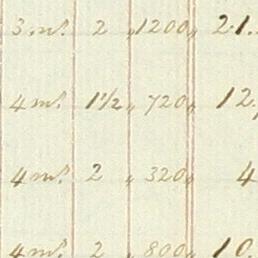 3 m.s 2 „ 1200 „ 21.
4 m.s 1 1/2 „ 720 „ 12.
4 m.s 2 „ 320 „ 4
4 m.s 2 „ 800 „ 10.